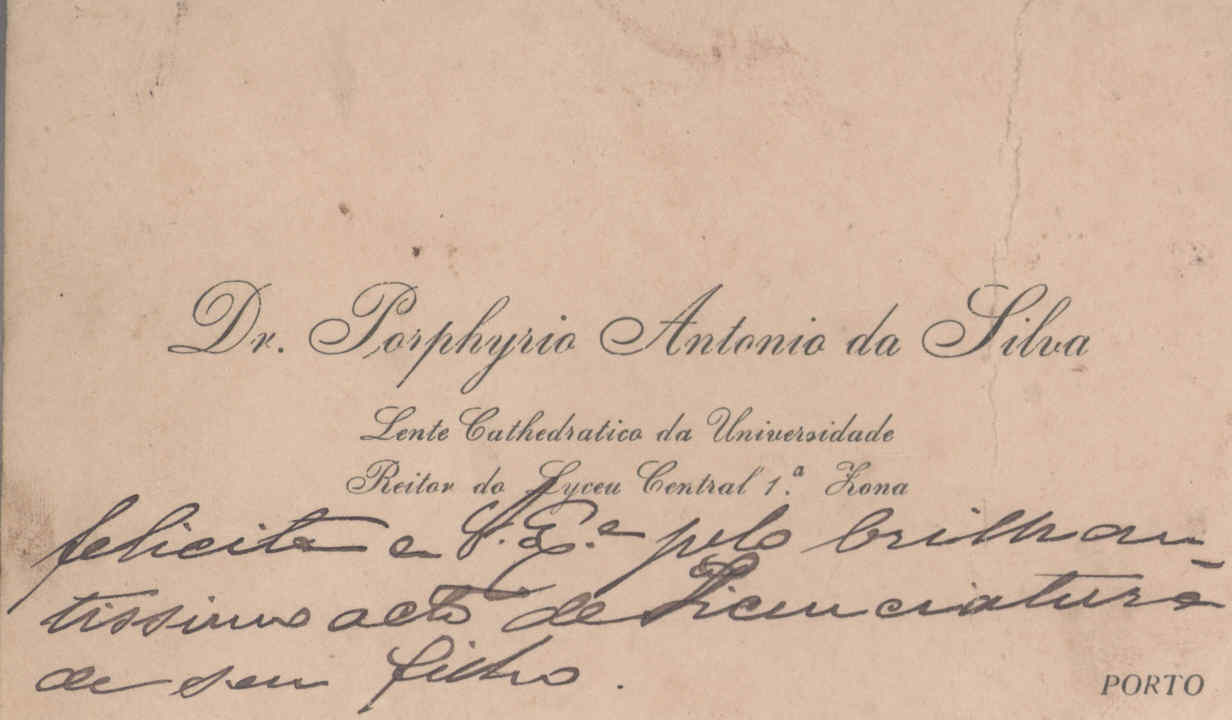 Dr. Porphyrio Antonio da Silva
Lente Cathedratico da Universidade
Reitor do Lyceu Central 1.ª Zona
felicita a V. Ex.ª pelo brilhan-
tissimo acto de Licenciatura
de seu filho.
PORTO